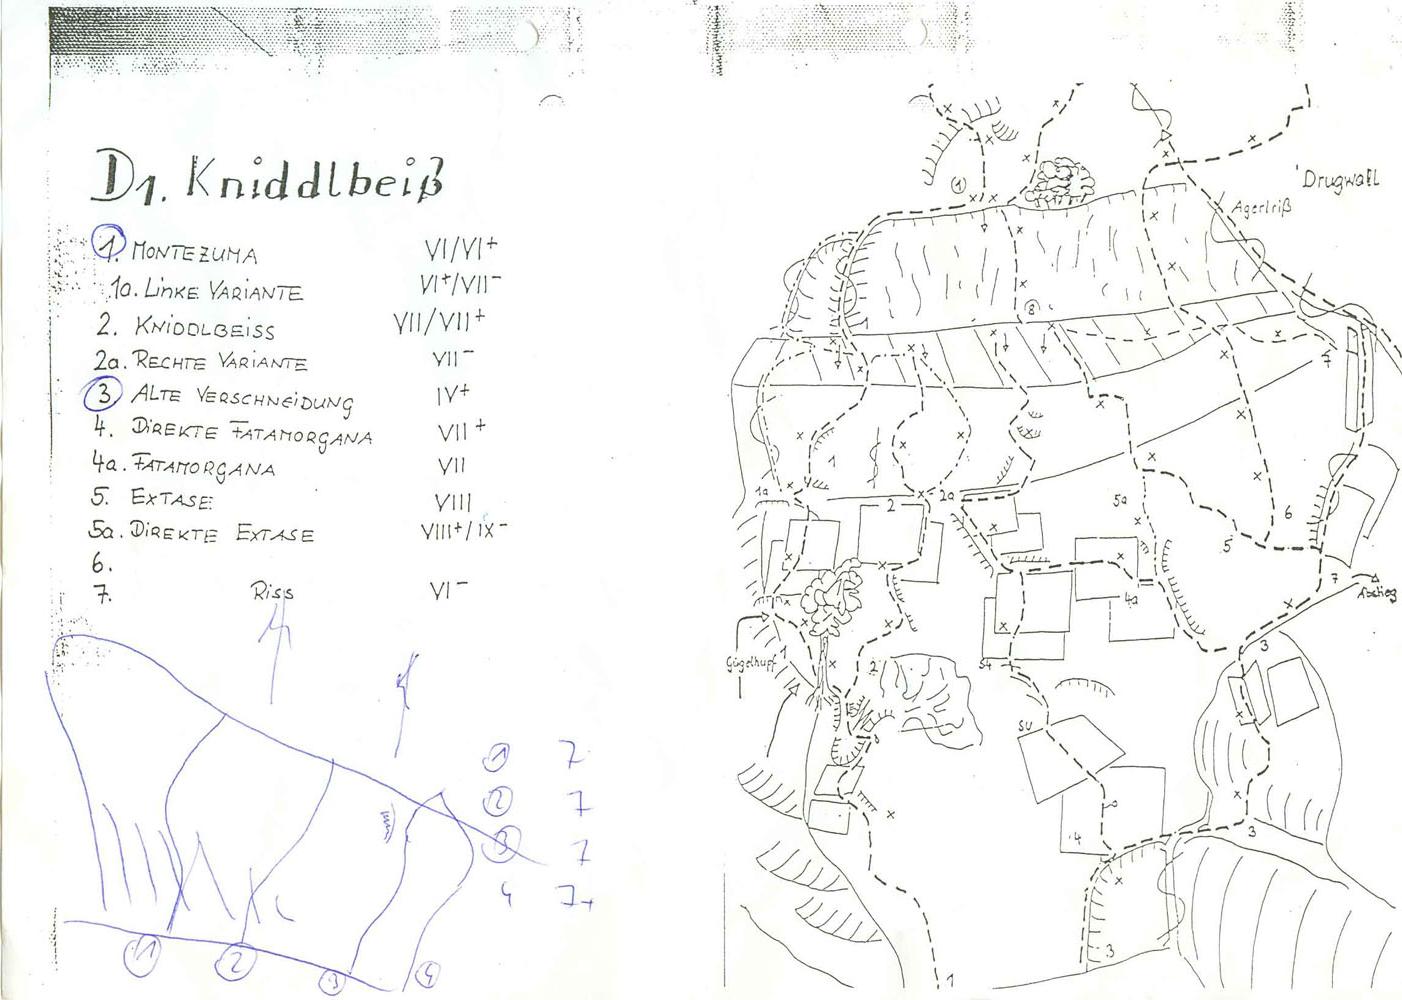 D1. Kniddlbeiß
1. MONTEZUMA VI/VI+
1a. LINKE VARIANTE VI+/VII-
2. KNIDDLBEISS VII/VII+
2a. RECHTE VARIANTE VII-
3 ALTE VERSCHNEIDUNG IV+
4. DIREKTE FATAMORGANA VII+
4a. FATAMORGANA VII
5. EXTASE VIII
5a. DIREKTE EXTASE VIII+/IX-
6.
7. Riss VI-
1 7
2 7
3 7
4 7+
1 2 3 4
Drugwall
1
Agertriß
8
7
1
1a
2
2a
5a
6
5
4a
7
Abstieg
Gugelhupf
1
2
3
SU
4
3
3
1